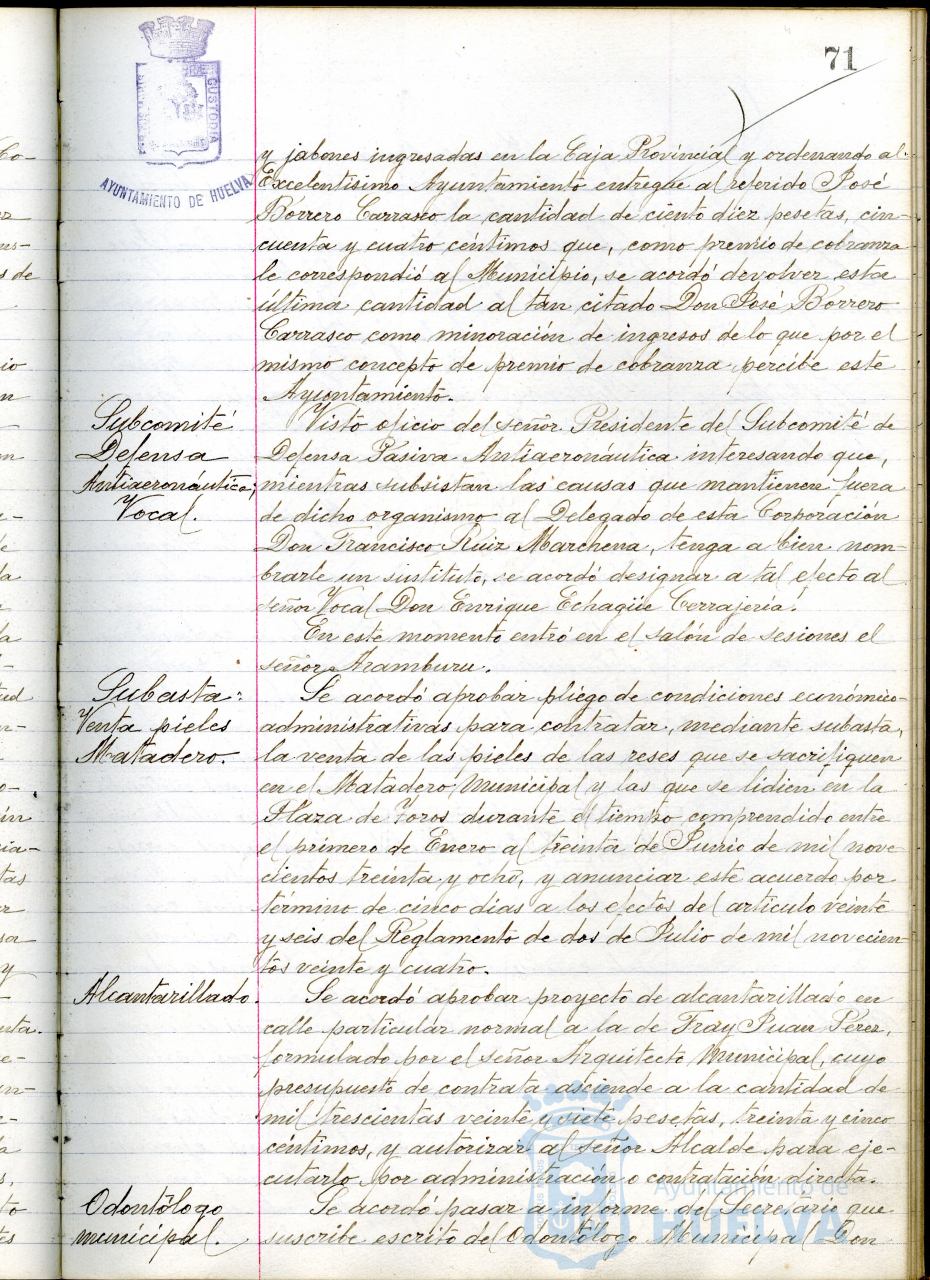 71
CUSTODIA
AYUNTAMIENTO DE HUELVA
y jabones ingresadas en la Caja Provincial y ordenando al
Excelentisimo Ayuntamiento entregue al referido José
Borrero Carrasco la cantidad de ciento diez pesetas, cin-
cuenta y cuatro céntimos que, como premio de cobranza
le correspondió al Municipio, se acordó devolver esta
ultima cantidad al tan citado Don José Borrero
Carrasco como minoración de ingresos de lo que por el
mismo concepto de premio de cobranza percibe este
Ayuntamiento.
Subcomité
Defensa
Antiaeronáutica;
Vocal.
Visto oficio del señor Presidente del Subcomité de
Defensa Pasiva Antiaeronáutica interesando que,
mientras subsistan las causas que mantienen fuera
de dicho organismo al Delegado de esta Corporación
Don Francisco Ruiz Marchena, tenga a bien nom-
brarle un sustituto, se acordó designar a tal efecto al
señor Vocal Don Enrique Echagüe Cerrajería.
En este momento entró en el salón de sesiones el
señor Aramburu.
Subasta:
Venta pieles
Matadero.
Se acordó aprobar pliego de condiciones económico-
administrativas para contratar, mediante subasta,
la venta de las pieles de las reses que se sacrifiquen
en el Matadero Municipal y las que se lidien en la
Plaza de Toros durante el tiempo comprendido entre
el primero de Enero al treinta de Junio de mil nove-
cientos treinta y ocho, y anunciar este acuerdo por
término de cinco dias a los efectos del artículo veinte
y seis del Reglamento de dos de Julio de mil novecien-
tos veinte y cuatro.
Alcantarillado.
Se acordó aprobar proyecto de alcantarillado en
calle particular normal a la de Fray Juan Pérez,
formulado por el señor Arquitecto Municipal, cuyo
presupuesto de contrata asciende a la cantidad de
mil trescientas veinte y siete pesetas, treinta y cinco
céntimos, y autorizar al señor Alcalde para eje-
cutarlo por administración o contratación directa.
Odontólogo
municipal.
Se acordó pasar a informe del Secretario que
suscribe escrito del Odontólogo Municipal Don
Ayuntamiento de
HUELVA